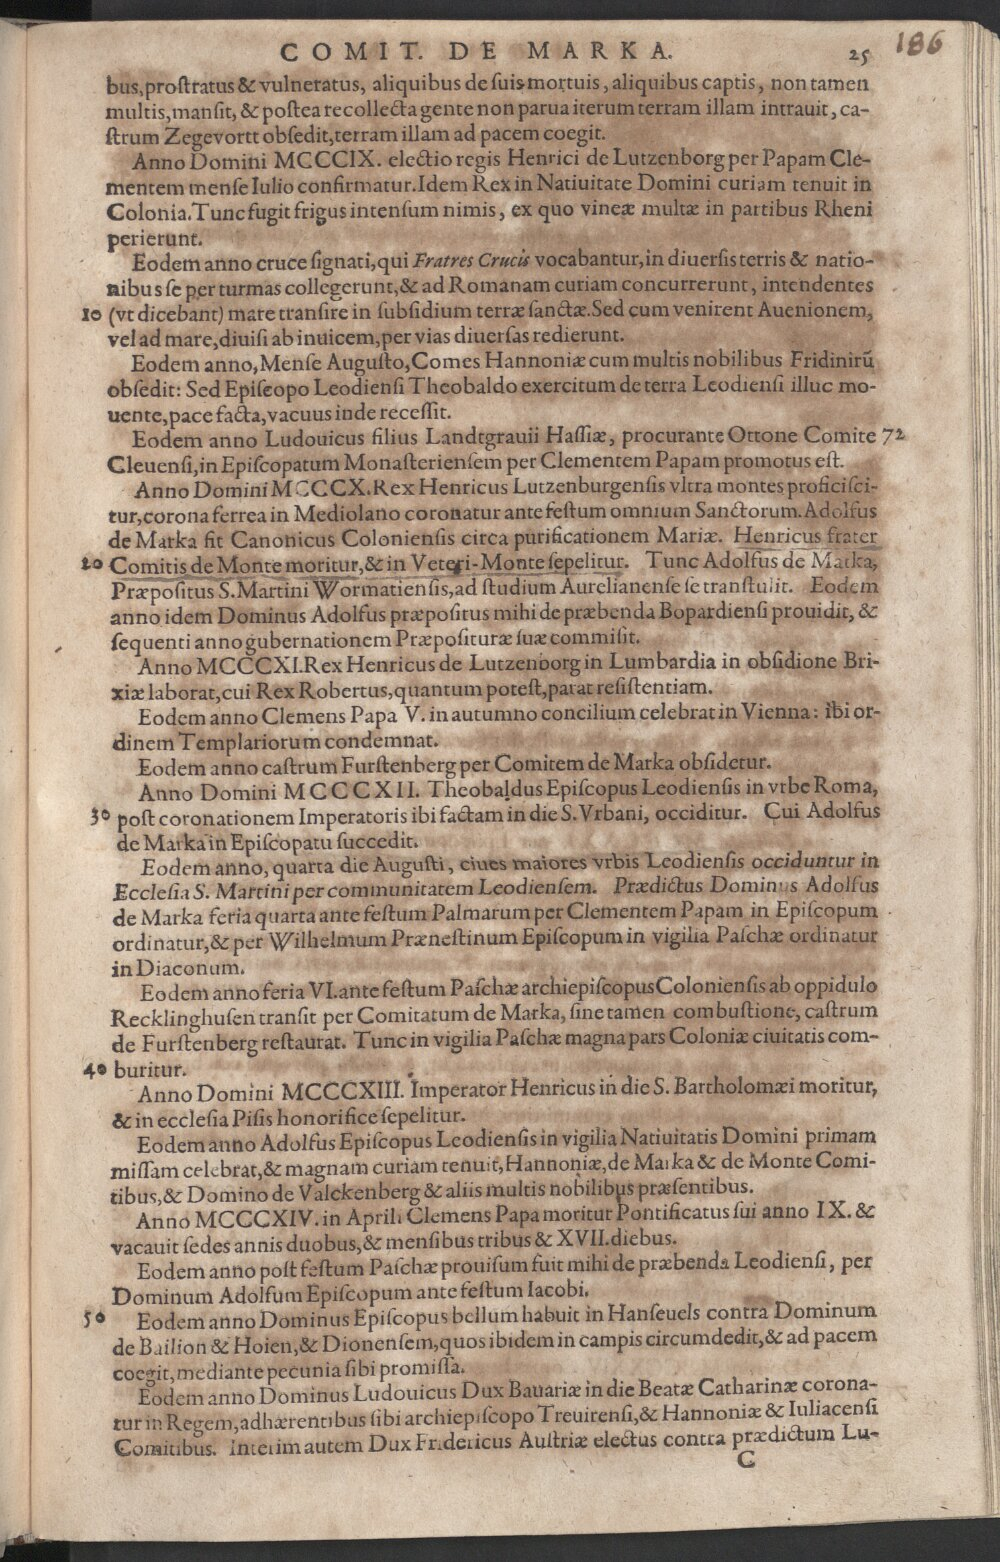 COMIT. DE MARKA. 25 186
bus, prostratus & vulneratus, aliquibus de suis mortuis, aliquibus captis, non tamen
multis, mansit, & postea recollecta gente non parua iterum terram illam intrauit, ca-
strum Zegevortt obsedit, terram illam ad pacem coegit.
Anno Domini MCCCIX. electio regis Henrici de Lutzenborg per Papam Cle-
mentem mense Iulio confirmatur. Idem Rex in Natiuitate Domini curiam tenuit in
Colonia. Tunc fugit frigus intensum nimis, ex quo vineæ multæ in partibus Rheni
perierunt.
Eodem anno cruce signati, qui Fratres Crucis vocabantur, in diuersis terris & natio-
nibus se per turmas collegerunt, & ad Romanam curiam concurrerunt, intendentes
10 (vt dicebant) mare transire in subsidium terræ sanctæ. Sed cum venirent Auenionem,
vel ad mare, diuisi ab inuicem, per vias diuersas redierunt.
Eodem anno, Mense Augusto, Comes Hannoniæ cum multis nobilibus Fridinirũ
obsedit: Sed Episcopo Leodiensi Theobaldo exercitum de terra Leodiensi illuc mo-
uente, pace facta, vacuus inde recessit.
Eodem anno Ludouicus filius Landtgrauii Hassiæ, procurante Ottone Comite 72
Cleuensi, in Episcopatum Monasteriensem per Clementem Papam promotus est.
Anno Domini MCCCX. Rex Henricus Lutzenburgensis vltra montes proficisci-
tur, corona ferrea in Mediolano coronatur ante festum omnium Sanctorum. Adolfus
de Marka fit Canonicus Coloniensis circa purificationem Mariæ. Henricus frater
20 Comitis de Monte moritur, & in Veteri-Monte sepelitur. Tunc Adolfus de Marka,
Præpositus S. Martini Wormatiensis, ad studium Aurelianense se transtulit. Eodem
anno idem Dominus Adolfus præpositus mihi de præbenda Bopardiensi prouidit, &
sequenti anno gubernationem Præposituræ suæ commisit.
Anno MCCCXI. Rex Henricus de Lutzenborg in Lumbardia in obsidione Bri-
xiæ laborat, cui Rex Robertus, quantum potest, parat resistentiam.
Eodem anno Clemens Papa V. in autumno concilium celebrat in Vienna: ibi or-
dinem Templariorum condemnat.
Eodem anno castrum Furstenberg per Comitem de Marka obsidetur.
Anno Domini MCCCXII. Theobaldus Episcopus Leodiensis in vrbe Roma,
30 post coronationem Imperatoris ibi factam in die S. Vrbani, occiditur. Cui Adolfus
de Marka in Episcopatu succedit.
Eodem anno, quarta die Augusti, ciues maiores vrbis Leodiensis occiduntur in
Ecclesia S. Martini per communitatem Leodiensem. Prædictus Dominus Adolfus
de Marka feria quarta ante festum Palmarum per Clementem Papam in Episcopum
ordinatur, & per Wilhelmum Prænestinum Episcopum in vigilia Paschæ ordinatur
in Diaconum.
Eodem anno feria VI. ante festum Paschæ archiepiscopus Coloniensis ab oppidulo
Recklinghusen transit per Comitatum de Marka, sine tamen combustione, castrum
de Furstenberg restaurat. Tunc in vigilia Paschæ magna pars Coloniæ ciuitatis com-
40 buritur.
Anno Domini MCCCXIII. Imperator Henricus in die S. Bartholomæi moritur,
& in ecclesia Pisis honorifice sepelitur.
Eodem anno Adolfus Episcopus Leodiensis in vigilia Natiuitatis Domini primam
missam celebrat, & magnam curiam tenuit, Hannoniæ, de Marka & de Monte Comi-
tibus, & Domino de Valckenberg & aliis multis nobilibus præsentibus.
Anno MCCCXIV. in Aprili Clemens Papa moritur Pontificatus sui anno IX. &
vacauit sedes annis duobus, & mensibus tribus & XVII. diebus.
Eodem anno post festum Paschæ prouisum fuit mihi de præbenda Leodiensi, per
Dominum Adolfum Episcopum ante festum Iacobi.
50 Eodem anno Dominus Episcopus bellum habuit in Hanseuels contra Dominum
de Bailion & Hoien, & Dionensem, quos ibidem in campis circumdedit, & ad pacem
coegit, mediante pecunia sibi promissa.
Eodem anno Dominus Ludouicus Dux Bauariæ in die Beatæ Catharinæ corona-
tur in Regem, adhærentibus sibi archiepiscopo Treuirensi, & Hannoniæ & Iuliacensi
Comitibus. Interim autem Dux Fridericus Austriæ electus contra prædictum Lu-
C